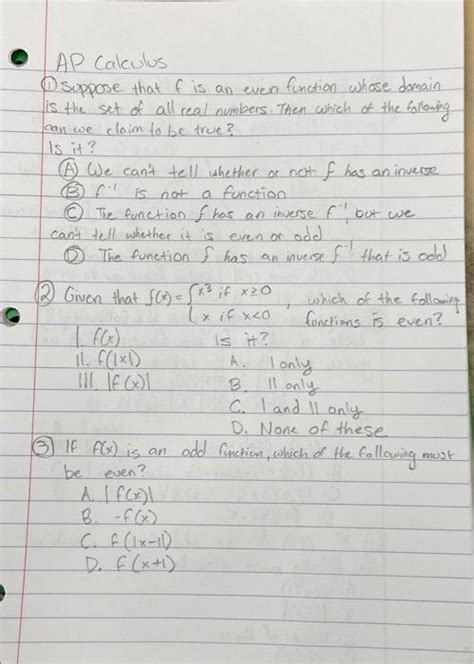 AP Calculus
① Suppose that f is an even function whose domain
is the set of all real numbers. Then which of the following
can we claim to be true?
Is it?
Ⓐ We can't tell whether or not f has an inverse
Ⓑ f⁻¹ is not a function
Ⓒ The function f has an inverse f⁻¹, but we
can't tell whether it is even or odd
Ⓓ The function f has an inverse f⁻¹ that is odd
② Given that f(x) = { x³ if x≥0 , which of the following
x if x<0 functions is even?
I. f(x) Is it?
II. f(|x|) A. I only
III. |f(x)| B. II only
C. I and II only
D. None of these
③ If f(x) is an odd function, which of the following must
be even?
A. |f(x)|
B. -f(x)
C. f(|x-1|)
D. f(x+1)